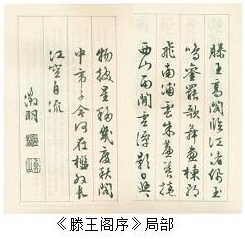 滕王高阁临江渚佩玉
鸣鸾罢歌舞画栋朝
飞南浦云朱帘暮捲
西山雨闲云潭影日悠
物换星移几度秋阁
中帝子今何在槛外长
江空自流
徵明
《滕王阁序》局部